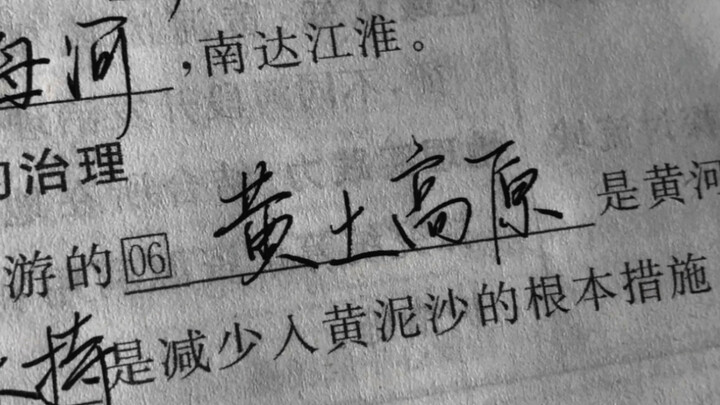 海河,南达江淮。
的治理
游的06黄土高原是黄河
持是减少入黄泥沙的根本措施